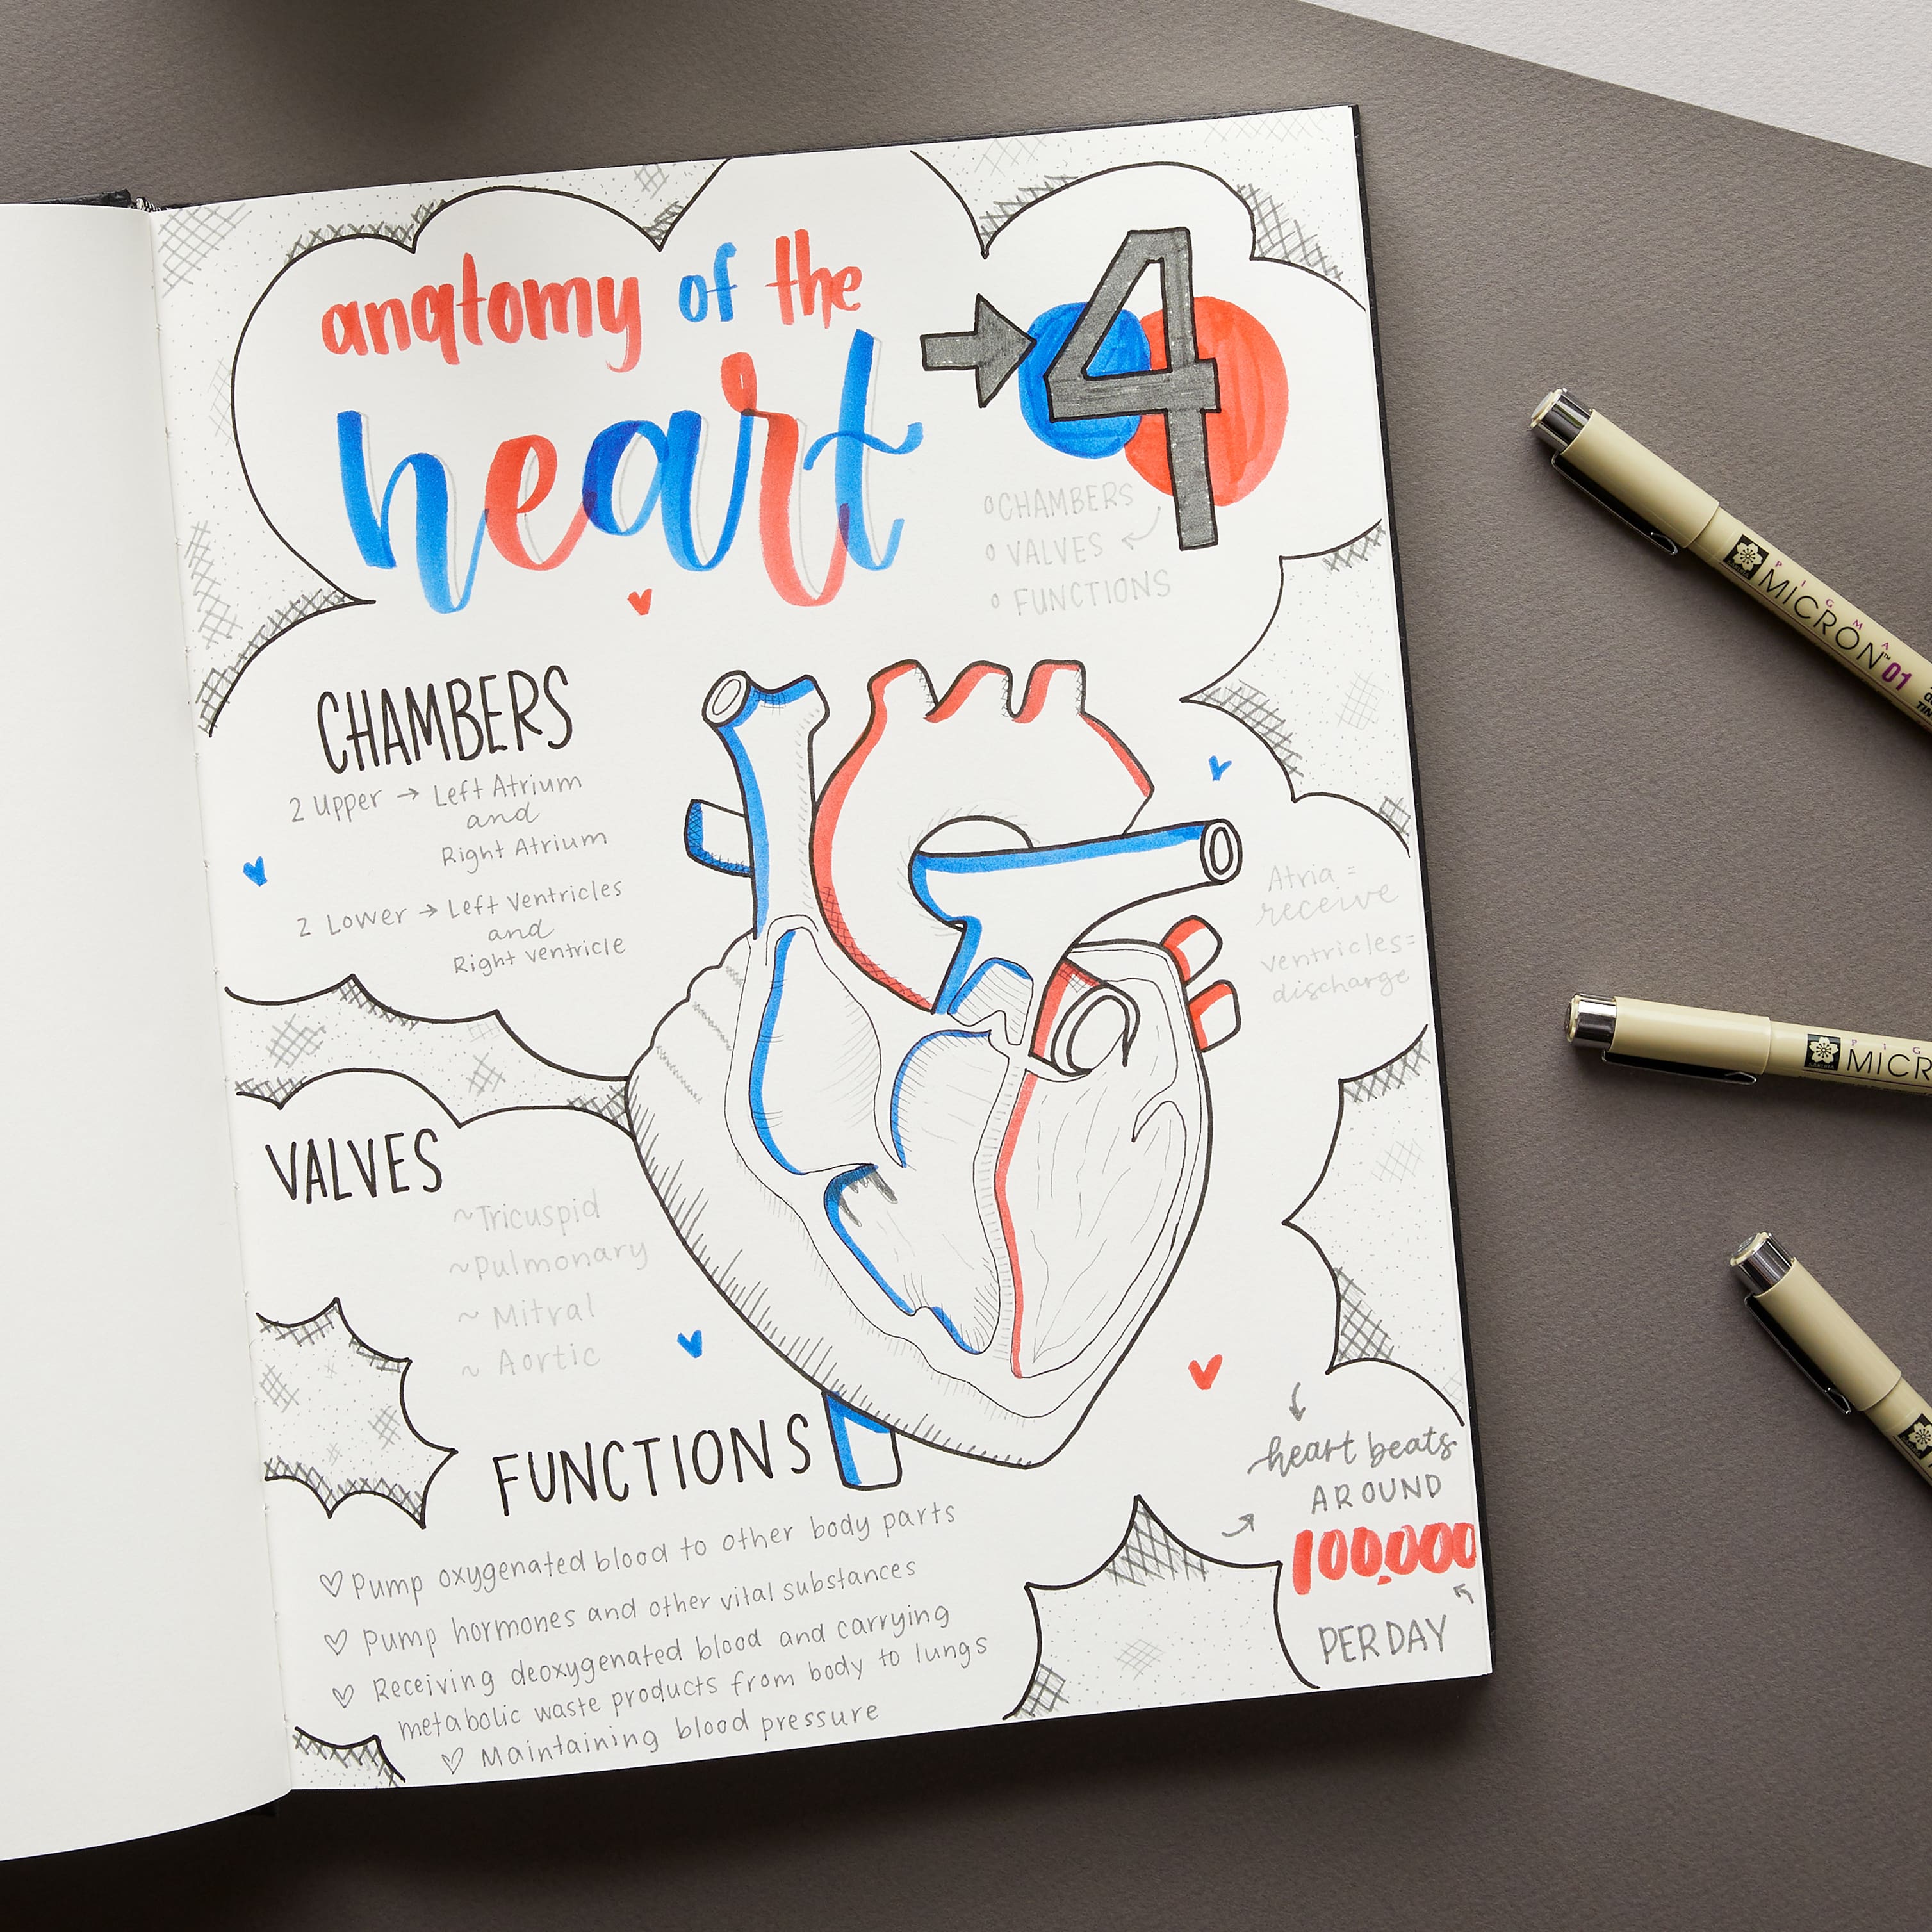 anatomy of the
heart
4
CHAMBERS
VALVES
FUNCTIONS
CHAMBERS
2 upper → Left Atrium
and
Right Atrium
2 Lower → Left Ventricles
and
Right ventricle
Atria =
receive
ventricles=
discharge
VALVES
~Tricuspid
~Pulmonary
~ Mitral
~ Aortic
FUNCTIONS
♡ Pump oxygenated blood to other body parts
♡ Pump hormones and other vital substances
♡ Receiving deoxygenated blood and carrying
metabolic waste products from body to lungs
♡ Maintaining blood pressure
heart beats
AROUND
100,000
PER DAY
PIGMA
MICRON™ 01
PIG
MICR